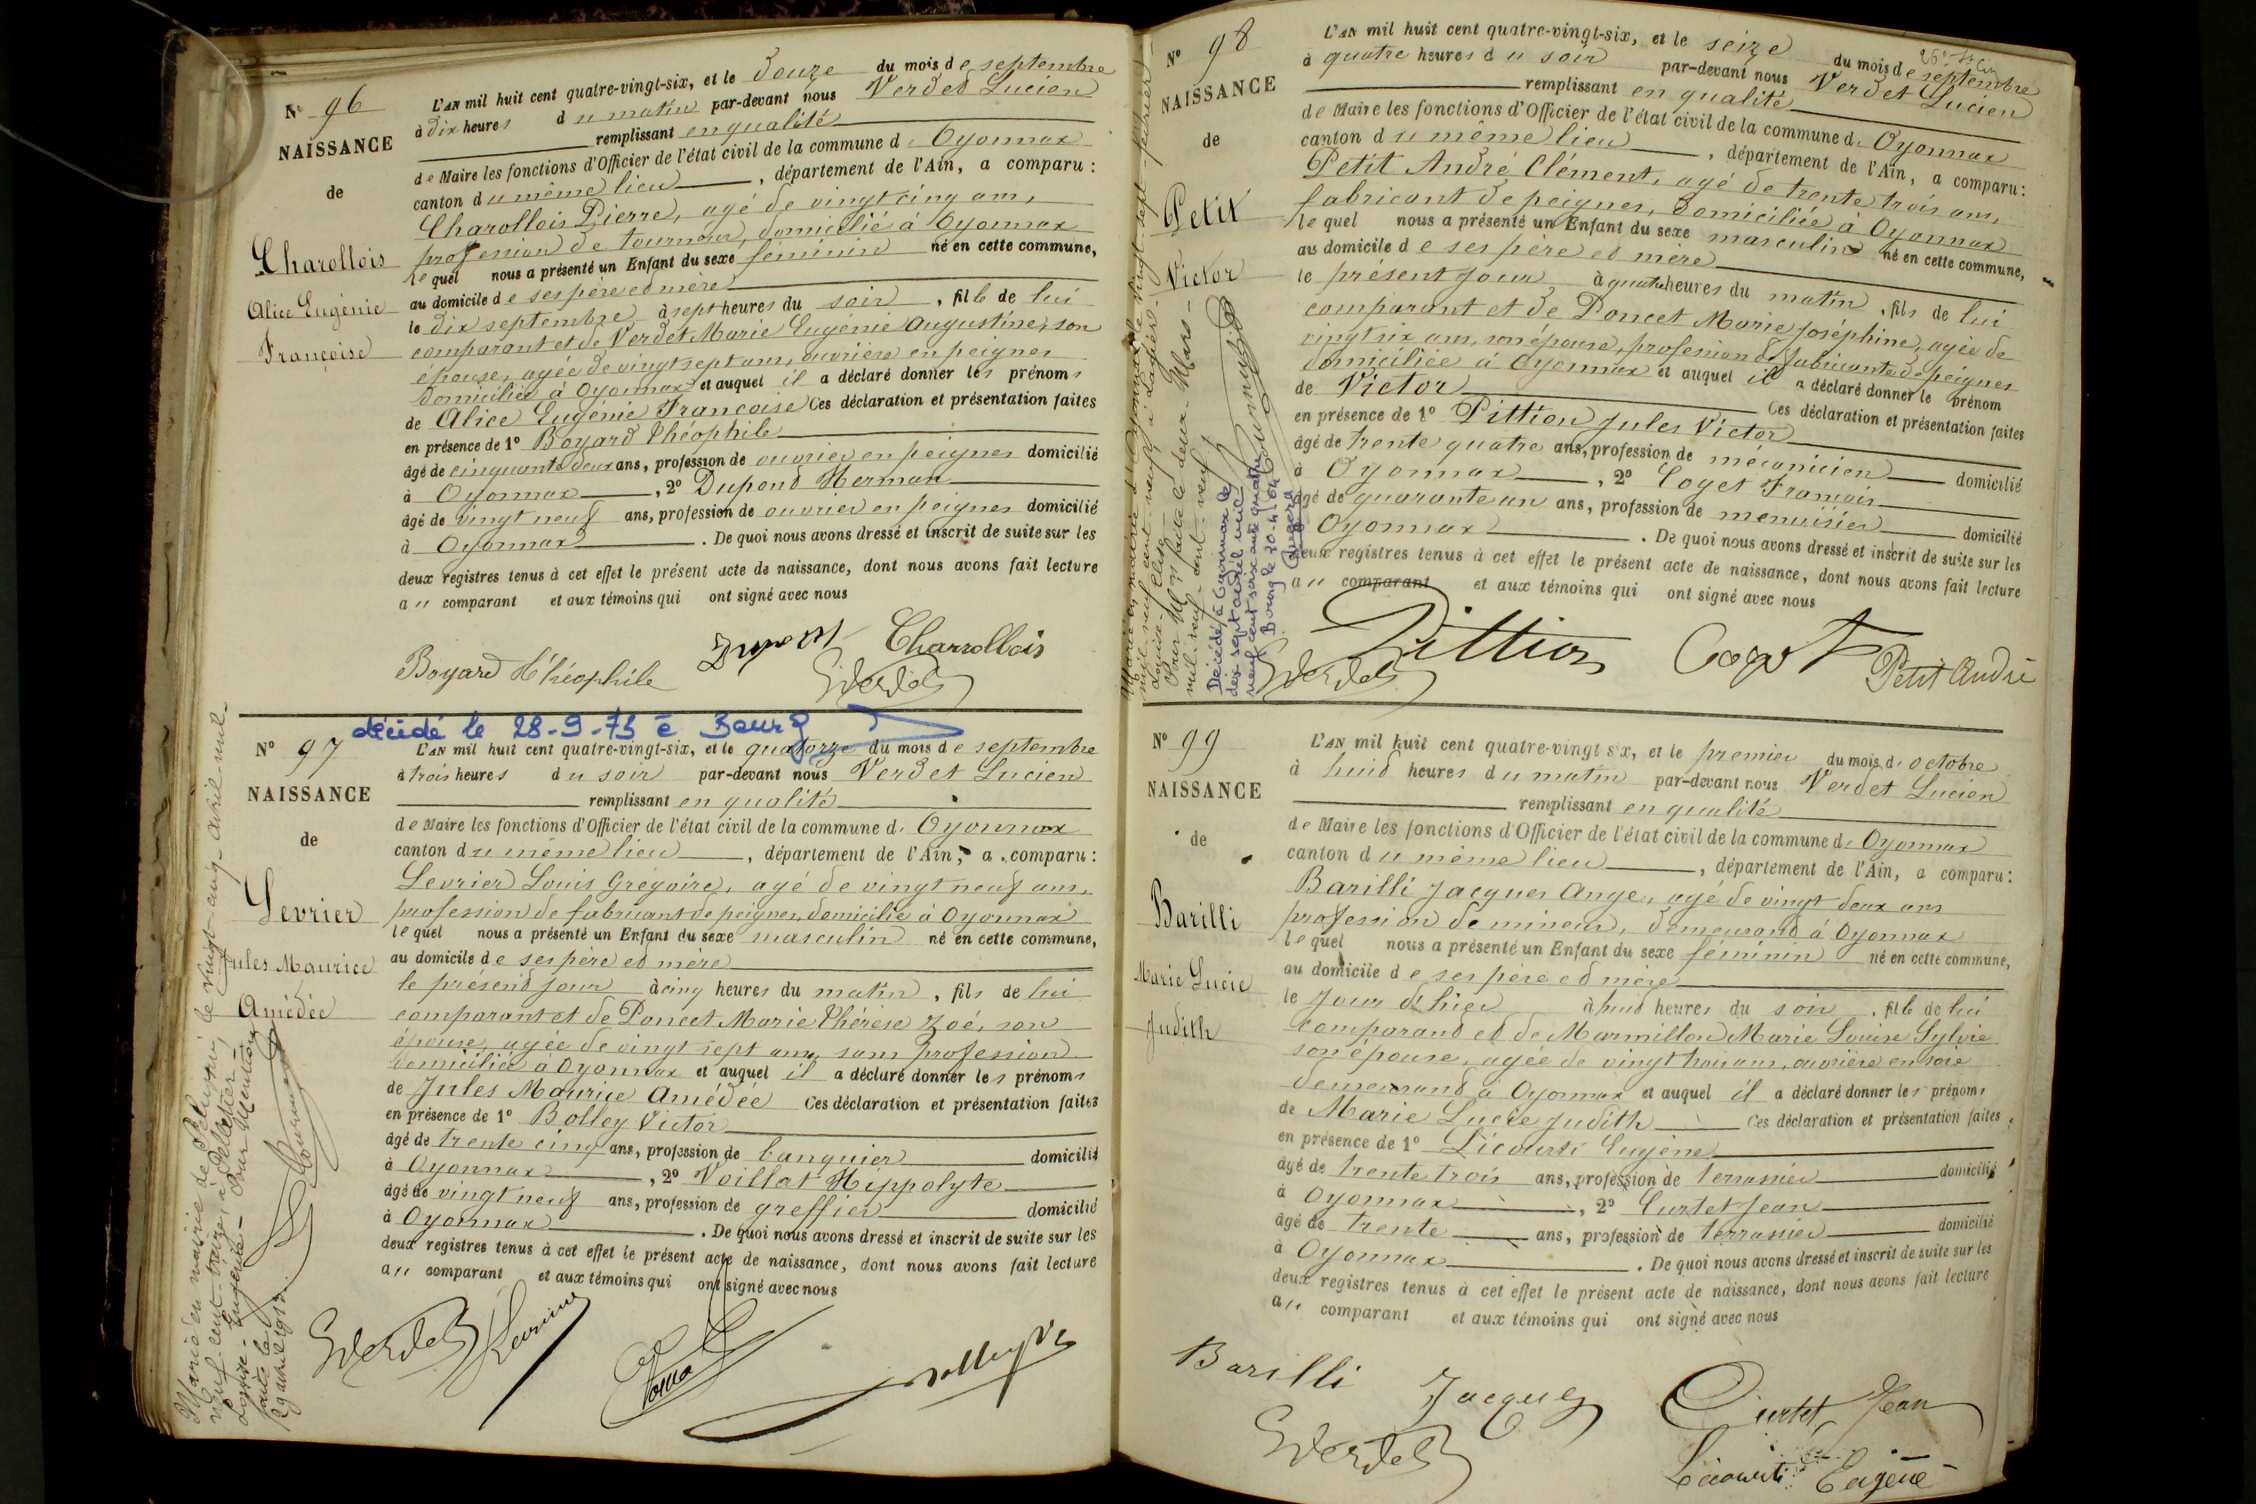 N° 96
NAISSANCE
de
Charollois
Alice Eugénie
Françoise
L'AN mil huit cent quatre-vingt-six, et le douze du mois de septembre
à dix heures du matin par-devant nous Verdet Lucien
remplissant en qualité
de Maire les fonctions d'Officier de l'état civil de la commune d. Oyonnax
canton du même lieu , département de l'Ain, a comparu :
Charollois Pierre, agé de vingt cinq ans,
profession de tourneur, domicilié à Oyonnax
lequel nous a présenté un Enfant du sexe féminin né en cette commune,
au domicile de ses père et mère
le dix septembre à sept heures du soir , fille de lui
comparant et de Verdet Marie Eugénie Augustine, son
épouse, agée de vingt sept ans, ouvrière en peignes
domiciliée à Oyonnax et auquel il a déclaré donner les prénoms
de Alice Eugénie Françoise Ces déclaration et présentation faites
en présence de 1° Boyard Théophile
âgé de cinquante deux ans, profession de ouvrier en peignes domicilié
à Oyonnax , 2° Dupond Herman
âgé de vingt neuf ans, profession de ouvrier en peignes domicilié
à Oyonnax . De quoi nous avons dressé et inscrit de suite sur les
deux registres tenus à cet effet le présent acte de naissance, dont nous avons fait lecture
au comparant et aux témoins qui ont signé avec nous
Dupond Charollois
Boyard Théophile Verdet
décédé le 28-9-73 à Bourg
N° 97
NAISSANCE
de
Levrier
Jules Maurice
Amédée
L'AN mil huit cent quatre-vingt-six, et le quatorze du mois de septembre
à trois heures du soir par-devant nous Verdet Lucien
remplissant en qualité
de Maire les fonctions d'Officier de l'état civil de la commune d. Oyonnax
canton du même lieu , département de l'Ain, a comparu :
Levrier Louis Grégoire, agé de vingt neuf ans,
profession de fabricant de peignes, domicilié à Oyonnax
lequel nous a présenté un Enfant du sexe masculin né en cette commune,
au domicile de ses père et mère
le présent jour à cinq heures du matin , fils de lui
comparant et de Poncet Marie Thérèse Zoé, son
épouse, agée de vingt sept ans, sans profession
domiciliée à Oyonnax et auquel il a déclaré donner les prénoms
de Jules Maurice Amédée Ces déclaration et présentation faites
en présence de 1° Bolley Victor
âgé de trente cinq ans, profession de banquier domicilié
à Oyonnax , 2° Voillat Hippolyte
âgé de vingt neuf ans, profession de greffier domicilié
à Oyonnax . De quoi nous avons dressé et inscrit de suite sur les
deux registres tenus à cet effet le présent acte de naissance, dont nous avons fait lecture
au comparant et aux témoins qui ont signé avec nous
Verdet Levrier
Marié en mairie de le vingt-cinq avril mil
neuf cent treize, à Pelletier
Louise - Eugénie - Pour Mention
faite le
29 avril 1913.
N° 98
NAISSANCE
de
Petit
Victor
L'AN mil huit cent quatre-vingt-six, et le seize du mois de septembre
à quatre heures du soir par-devant nous Verdet Lucien
remplissant en qualité
de Maire les fonctions d'Officier de l'état civil de la commune d. Oyonnax
canton du même lieu , département de l'Ain, a comparu :
Petit André Clément, agé de trente trois ans,
fabricant de peignes, domiciliée à Oyonnax
lequel nous a présenté un Enfant du sexe masculin né en cette commune,
au domicile de ses père et mère
le présent jour à quatre heures du matin , fils de lui
comparant et de Poncet Marie Joséphine, agée de
vingt six ans, son épouse, profession de fabricante de peignes
domiciliée à Oyonnax et auquel il a déclaré donner le prénom
de Victor Ces déclaration et présentation faites
en présence de 1° Pittion Jules Victor
âgé de trente quatre ans, profession de mécanicien domicilié
à Oyonnax , 2° Coget François
âgé de quarante un ans, profession de menuisier domicilié
à Oyonnax . De quoi nous avons dressé et inscrit de suite sur les
deux registres tenus à cet effet le présent acte de naissance, dont nous avons fait lecture
au comparant et aux témoins qui ont signé avec nous
Verdet Pittion Coget Petit André
Marié en mairie d'Oyonnax le vingt-sept février
mil neuf cent neuf, à
Louise - Elisa
Pour Mention faite le deux - Mars -
mil neuf cent neuf.
Décédé à Oyonnax le
dix sept avril mil
neuf cent soixante quatre
Bourg le 20-4-64
N° 99
NAISSANCE
de
Barilli
Marie Lucie
Judith
L'AN mil huit cent quatre-vingt six, et le premier du mois d. octobre
à huit heures du matin par-devant nous Verdet Lucien
remplissant en qualité
de Maire les fonctions d'Officier de l'état civil de la commune d. Oyonnax
canton du même lieu , département de l'Ain, a comparu :
Barilli Jacques Ange, agé de vingt deux ans
profession de mineur, demeurant à Oyonnax
lequel nous a présenté un Enfant du sexe féminin né en cette commune,
au domicile de ses père et mère
le jour d'hier à huit heures du soir , fille de lui
comparant et de Marmillon Marie Louise Sylvie
son épouse, agée de vingt trois ans, ouvrière en soie
demeurant à Oyonnax et auquel il a déclaré donner les prénoms
de Marie Lucie Judith Ces déclaration et présentation faites
en présence de 1° Licourti Eugène
âgé de trente trois ans, profession de terrassier domicilié
à Oyonnax , 2° Curtet Jean
âgé de trente ans, profession de terrassier domicilié
à Oyonnax . De quoi nous avons dressé et inscrit de suite sur les
deux registres tenus à cet effet le présent acte de naissance, dont nous avons fait lecture
au comparant et aux témoins qui ont signé avec nous
Barilli Jacques Curtet Jean
Verdet Eugène